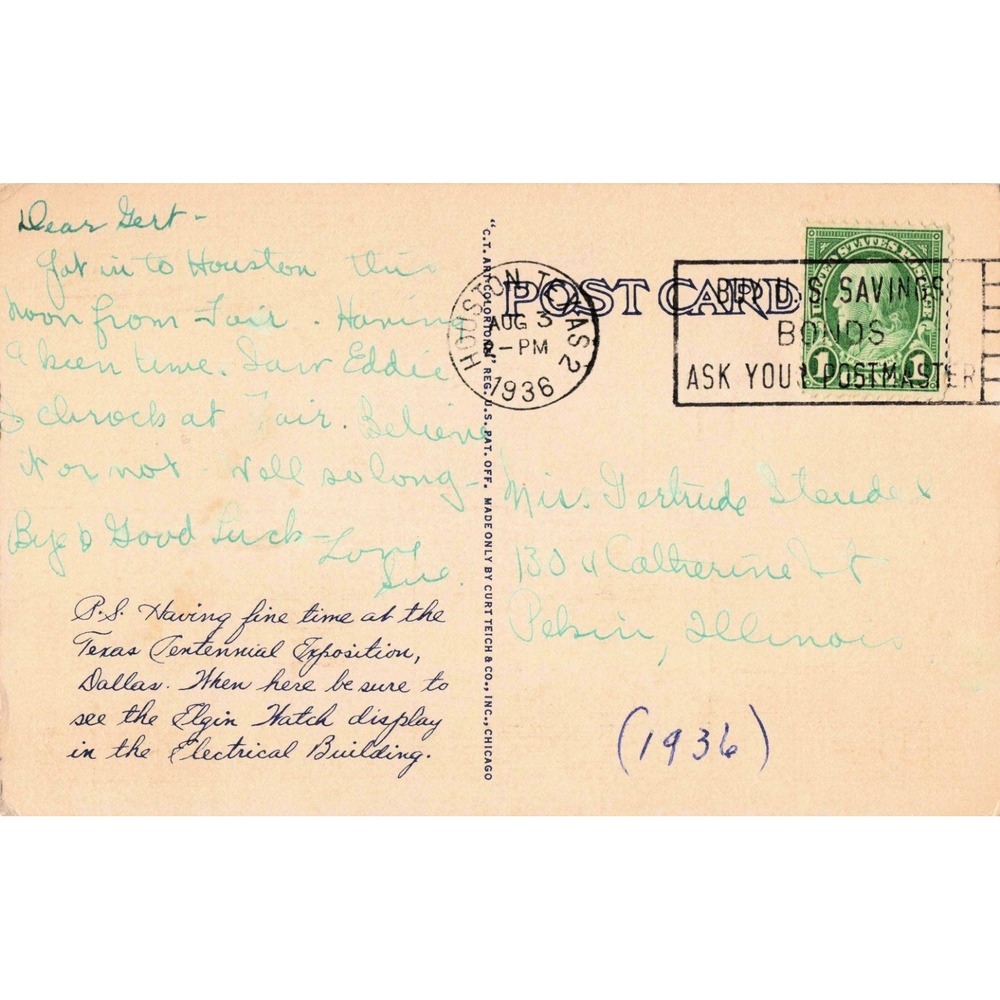 Dear Gert -
Got in to Houston this
noon from Fair. Having
a keen time. Saw Eddie
Schrock at Fair. Believe
it or not - Well so long -
Bye & Good Luck - Love
Sue.
P.S. Having fine time at the
Texas Centennial Exposition,
Dallas. When here be sure to
see the Elgin Watch display
in the Electrical Building.
"C.T. ART-COLORTONE" REG. U.S. PAT. OFF. MADE ONLY BY CURT TEICH & CO., INC., CHICAGO
POST CARD
HOUSTON, TEXAS 2
AUG 3
-PM
1936
BUY U S SAVINGS
BONDS
ASK YOUR POSTMASTER
UNITED STATES POSTAGE
1 1
Mis. Gertrude
1304 Catherine St
Pekin, Illinois
(1936)